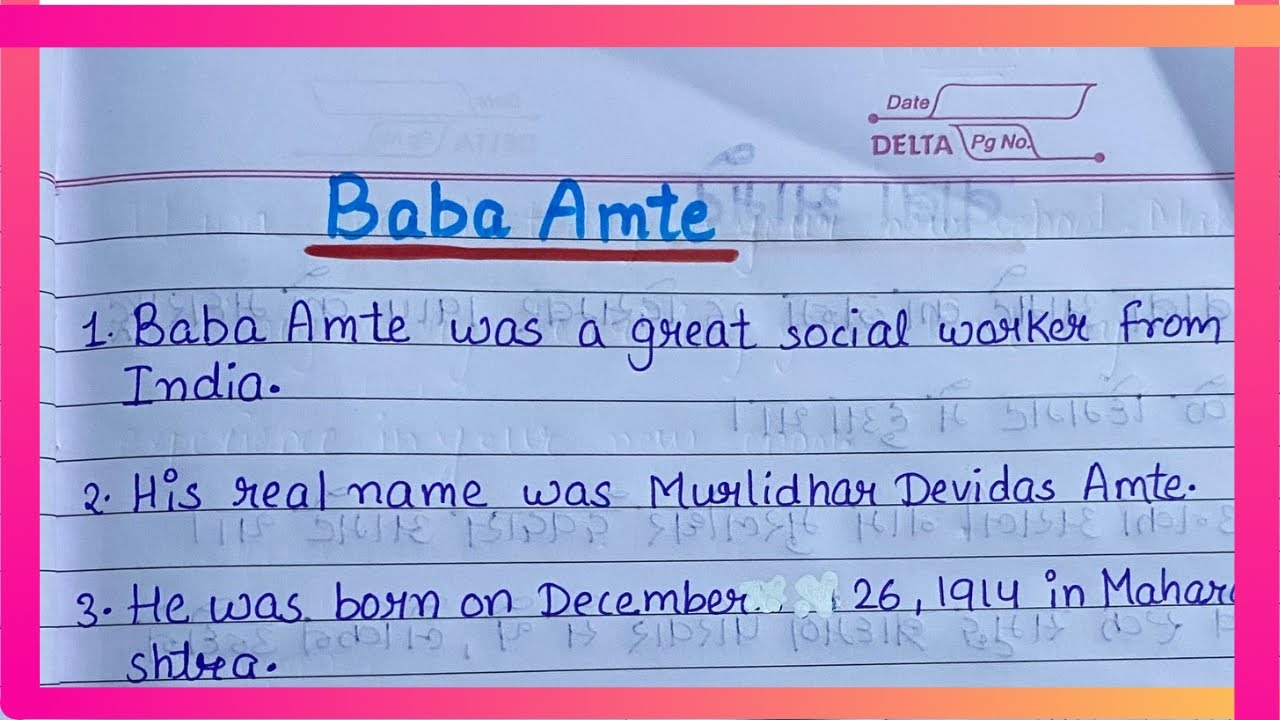 Date
DELTA Pg No.
Baba Amte
1. Baba Amte was a great social worker from
India.
2. His real name was Murlidhar Devidas Amte.
3. He was born on December 26, 1914 in Mahara
shtra.